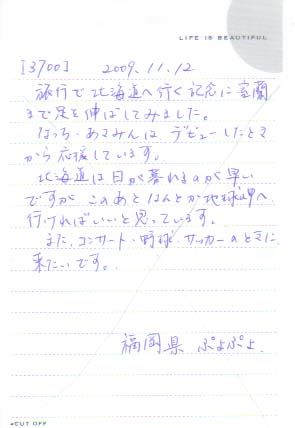 LIFE IS BEAUTIFUL
[3700] 2009.11.12
旅行で北海道へ行く記念に室蘭
まで足を伸ばしてみました。
なっち・あさみんは、デビューしたとき
から応援しています。
北海道は日が暮れるのが早い
ですが、このあとなんとか地球岬へ
行ければいいと思っています。
また、コンサート・野球・サッカーのときに
来たいです。
福岡県 ぷよぷよ.
CUT OFF